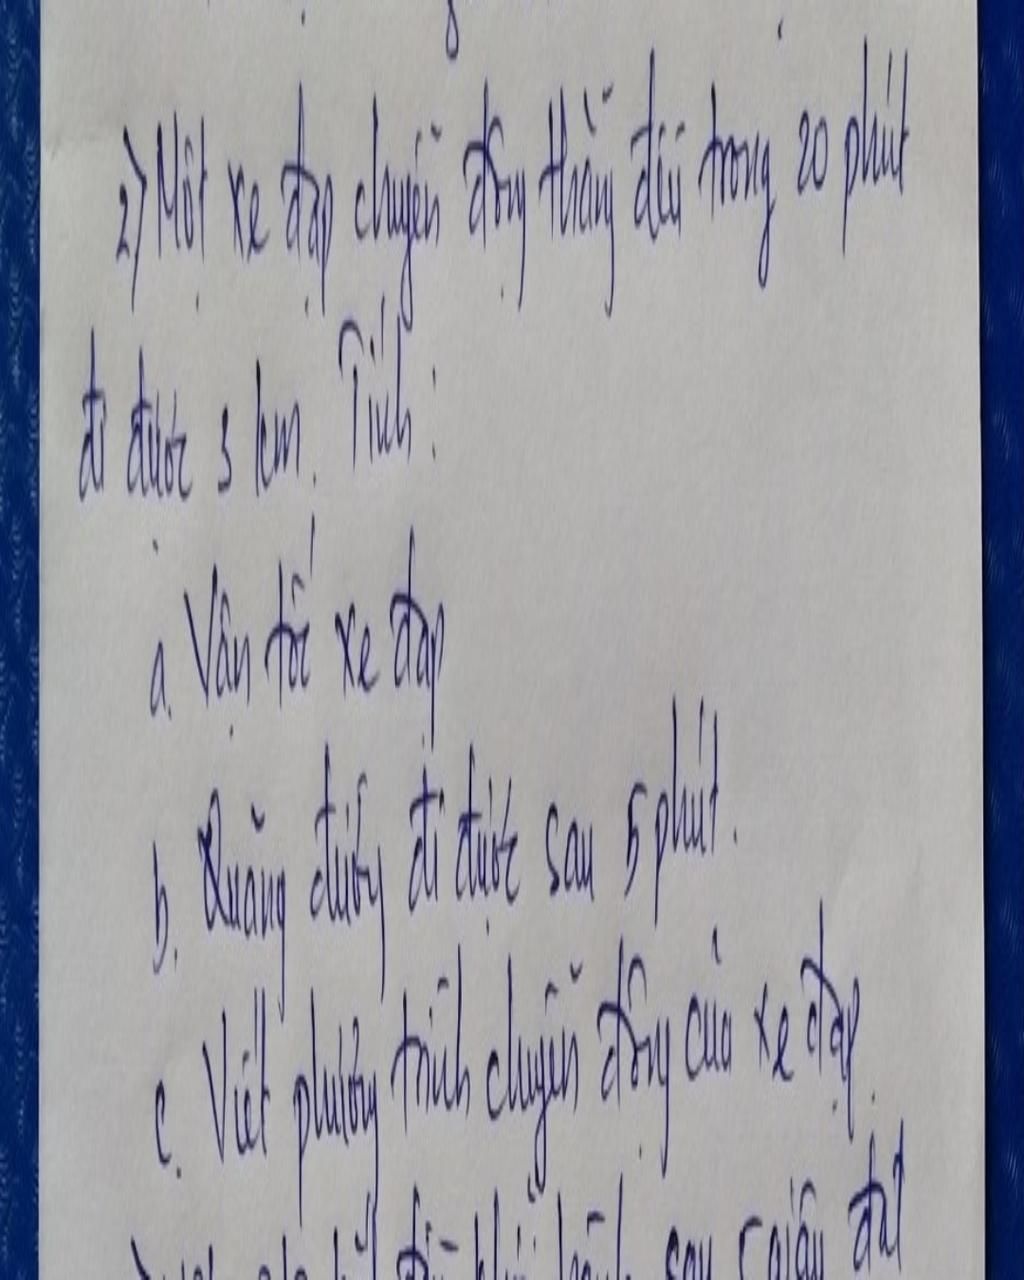 2) Một xe đạp chuyển động thẳng đều trong 20 phút
đi được 3 km. Tính:
a. Vận tốc xe đạp
b. Quãng đường đi được sau 5 phút.
c. Viết phương trình chuyển động của xe đạp.
sau 5 giây đạt